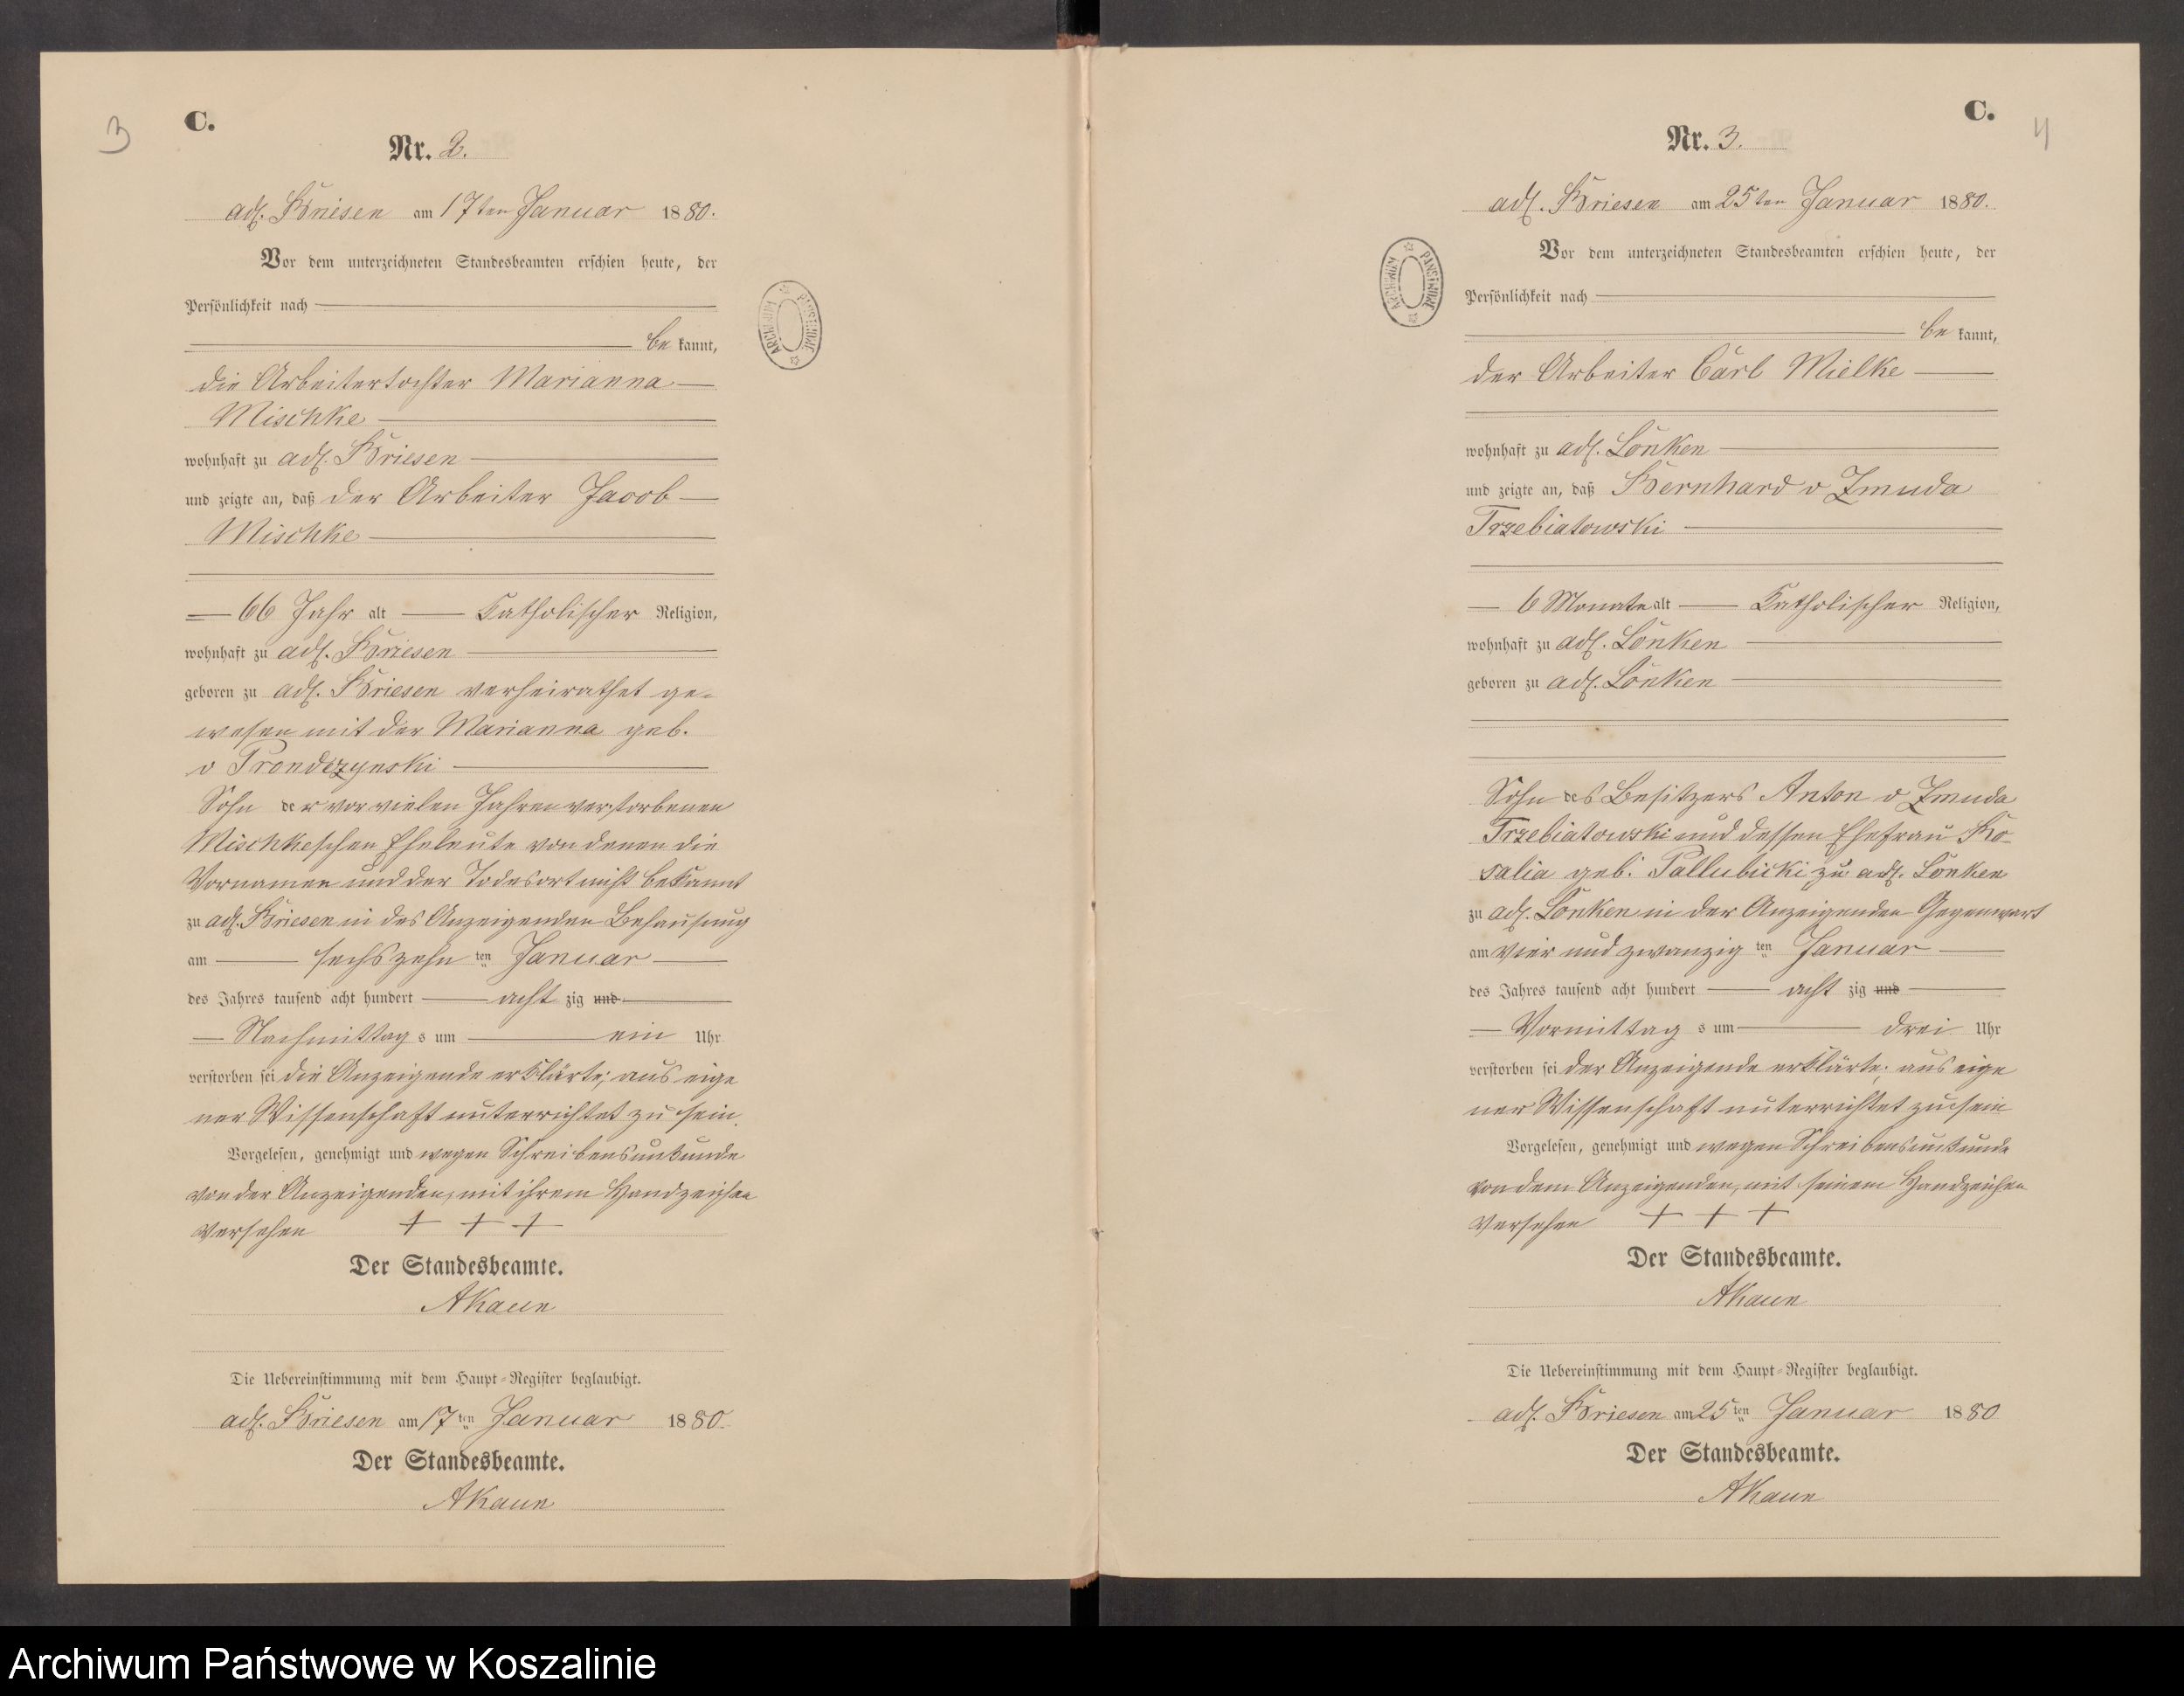 3
C.
Nr. 2.
adl. Briesen am 17ten Januar 1880.
Vor dem unterzeichneten Standesbeamten erschien heute, der
Persönlichkeit nach
be kannt,
die Arbeitertochter Marianna
Mischke
wohnhaft zu adl. Briesen
und zeigte an, daß der Arbeiter Jacob
Mischke
66 Jahr alt Katholischer Religion,
wohnhaft zu adl. Briesen
geboren zu adl. Briesen verheirathet ge-
wesen mit der Marianna geb.
v Prondzynski
Sohn der vor vielen Jahren verstorbenen
Mischkeschen Eheleute von denen die
Vornamen und der Todesort nicht bekannt
zu adl. Briesen in des Anzeigenden Behausung
am sechszehn ten Januar
des Jahres tausend acht hundert acht zig und
Nachmittag s um ein Uhr
verstorben sei die Anzeigende erklärte, aus eige
ner Wissenschaft unterrichtet zu sein.
Vorgelesen, genehmigt und wegen Schreibensunkunde
von der Anzeigenden, mit ihrem Handzeichen
versehen + + +
Der Standesbeamte.
AKaun
Die Uebereinstimmung mit dem Haupt-Register beglaubigt.
adl. Briesen am 17ten Januar 1880.
Der Standesbeamte.
AKaun
ARCHIWUM PAŃSTWOWE
C.
4
Nr. 3.
adl. Briesen am 25ten Januar 1880.
Vor dem unterzeichneten Standesbeamten erschien heute, der
Persönlichkeit nach
be kannt,
der Arbeiter Carl Mielke
wohnhaft zu adl. Lonken
und zeigte an, daß Bernhard v Zmuda
Trzebiatowski
6 Monate alt Katholischer Religion,
wohnhaft zu adl. Lonken
geboren zu adl. Lonken
Sohn des Besitzers Anton v Zmuda
Trzebiatowski und dessen Ehefrau Ro-
salia geb. Pallubicki zu adl. Lonken
zu adl. Lonken in der Anzeigenden Gegenwart
am vier und zwanzig ten Januar
des Jahres tausend acht hundert acht zig und
Vormittag s um drei Uhr
verstorben sei der Anzeigende erklärte, aus eige
ner Wissenschaft unterrichtet zu sein
Vorgelesen, genehmigt und wegen Schreibensunkunde
von dem Anzeigenden, mit seinem Handzeichen
versehen + + +
Der Standesbeamte.
AKaun
Die Uebereinstimmung mit dem Haupt-Register beglaubigt.
adl. Briesen am 25ten Januar 1880
Der Standesbeamte.
AKaun
ARCHIWUM PAŃSTWOWE
Archiwum Państwowe w Koszalinie